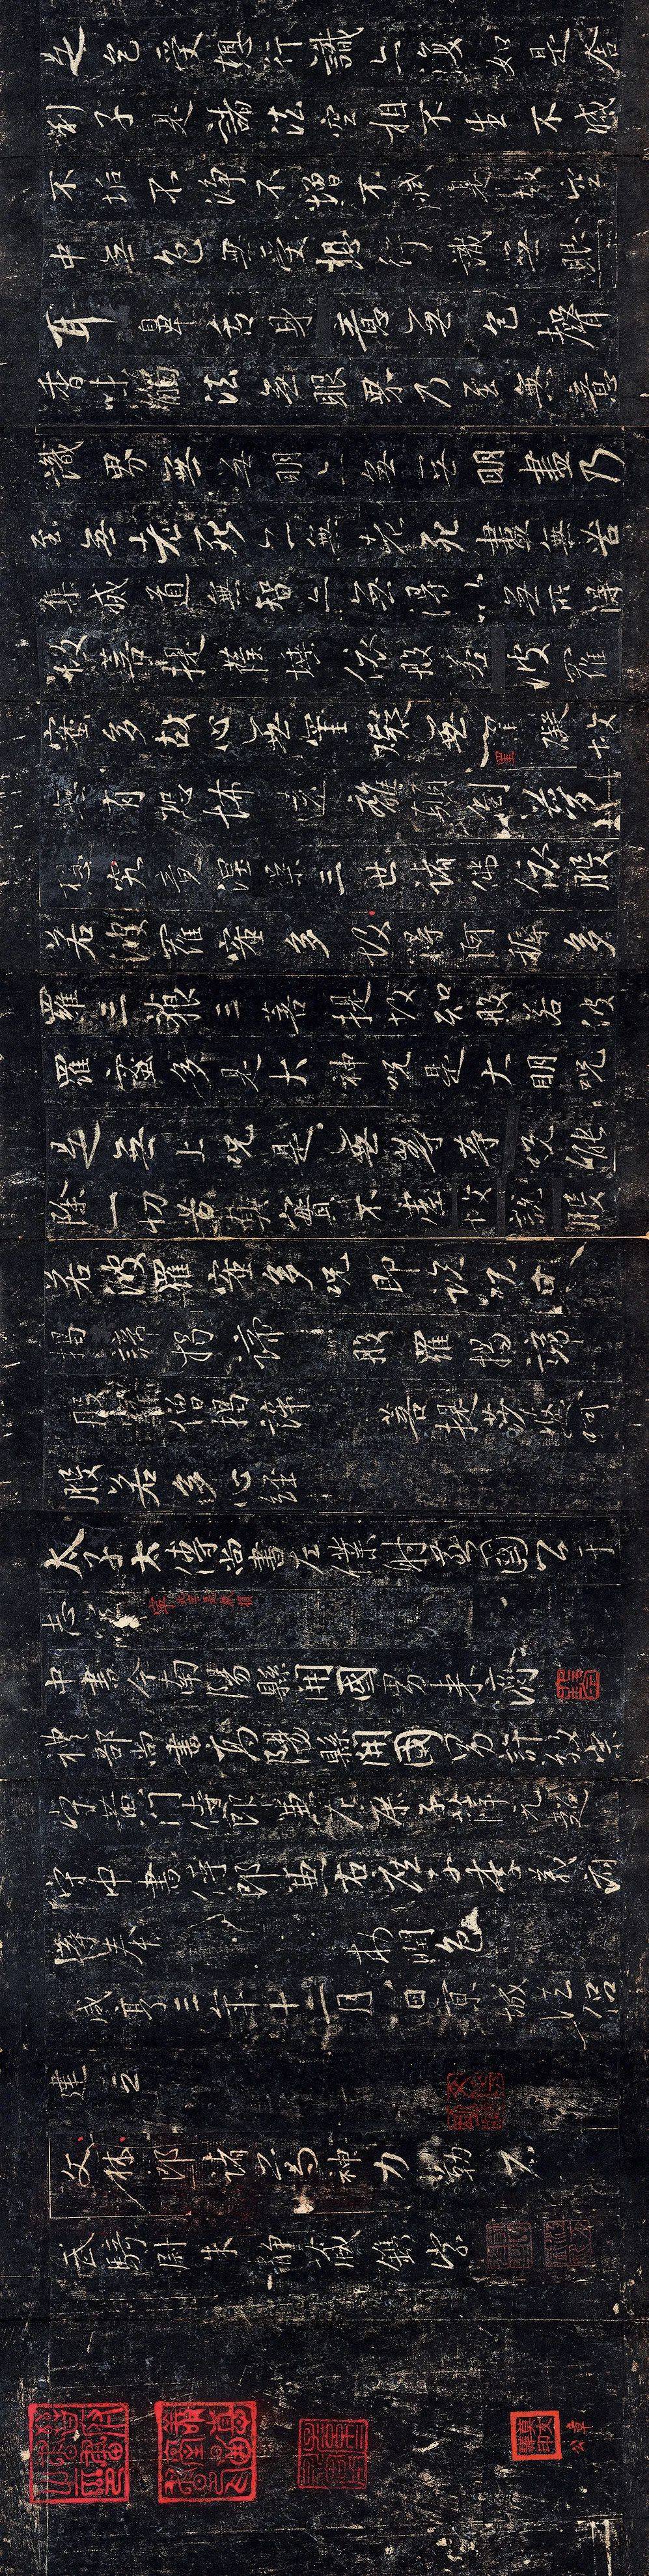 是色受想行識亦復如是舍
利子是諸法空相不生不滅
不垢不淨不增不減是故空
中無色無受想行識無眼
耳鼻舌身意無色聲
香味觸法無眼界乃至無意
識界無無明亦無無明盡乃
至無老死亦無老死盡無苦
集滅道無智亦無得以無所得
故菩提薩埵依般若波羅
蜜多故心無罣礙無罣礙故
無有恐怖遠離顛倒夢
想究竟涅槃三世諸佛依般
若波羅蜜多故得阿耨多
羅三藐三菩提故知般若波
羅蜜多是大神咒是大明咒
是無上咒是無等等咒能
除一切苦真實不虛故說般
若波羅蜜多咒即說咒曰
揭諦揭諦 般羅揭諦
般羅僧揭諦 菩提莎婆呵
般若多心經
太子太傅尚書左僕射燕國公于
志寧
中書令南陽縣開國男來濟
禮部尚書高陽縣開國男許敬宗
守黃門侍郎兼左庶子薛元超
守中書侍郎兼右庶子李義府
等奉 敕潤色
咸亨三年十二月八日京城法侶
建立
文林郎諸葛神力勒石
武騎尉朱靜藏鐫字